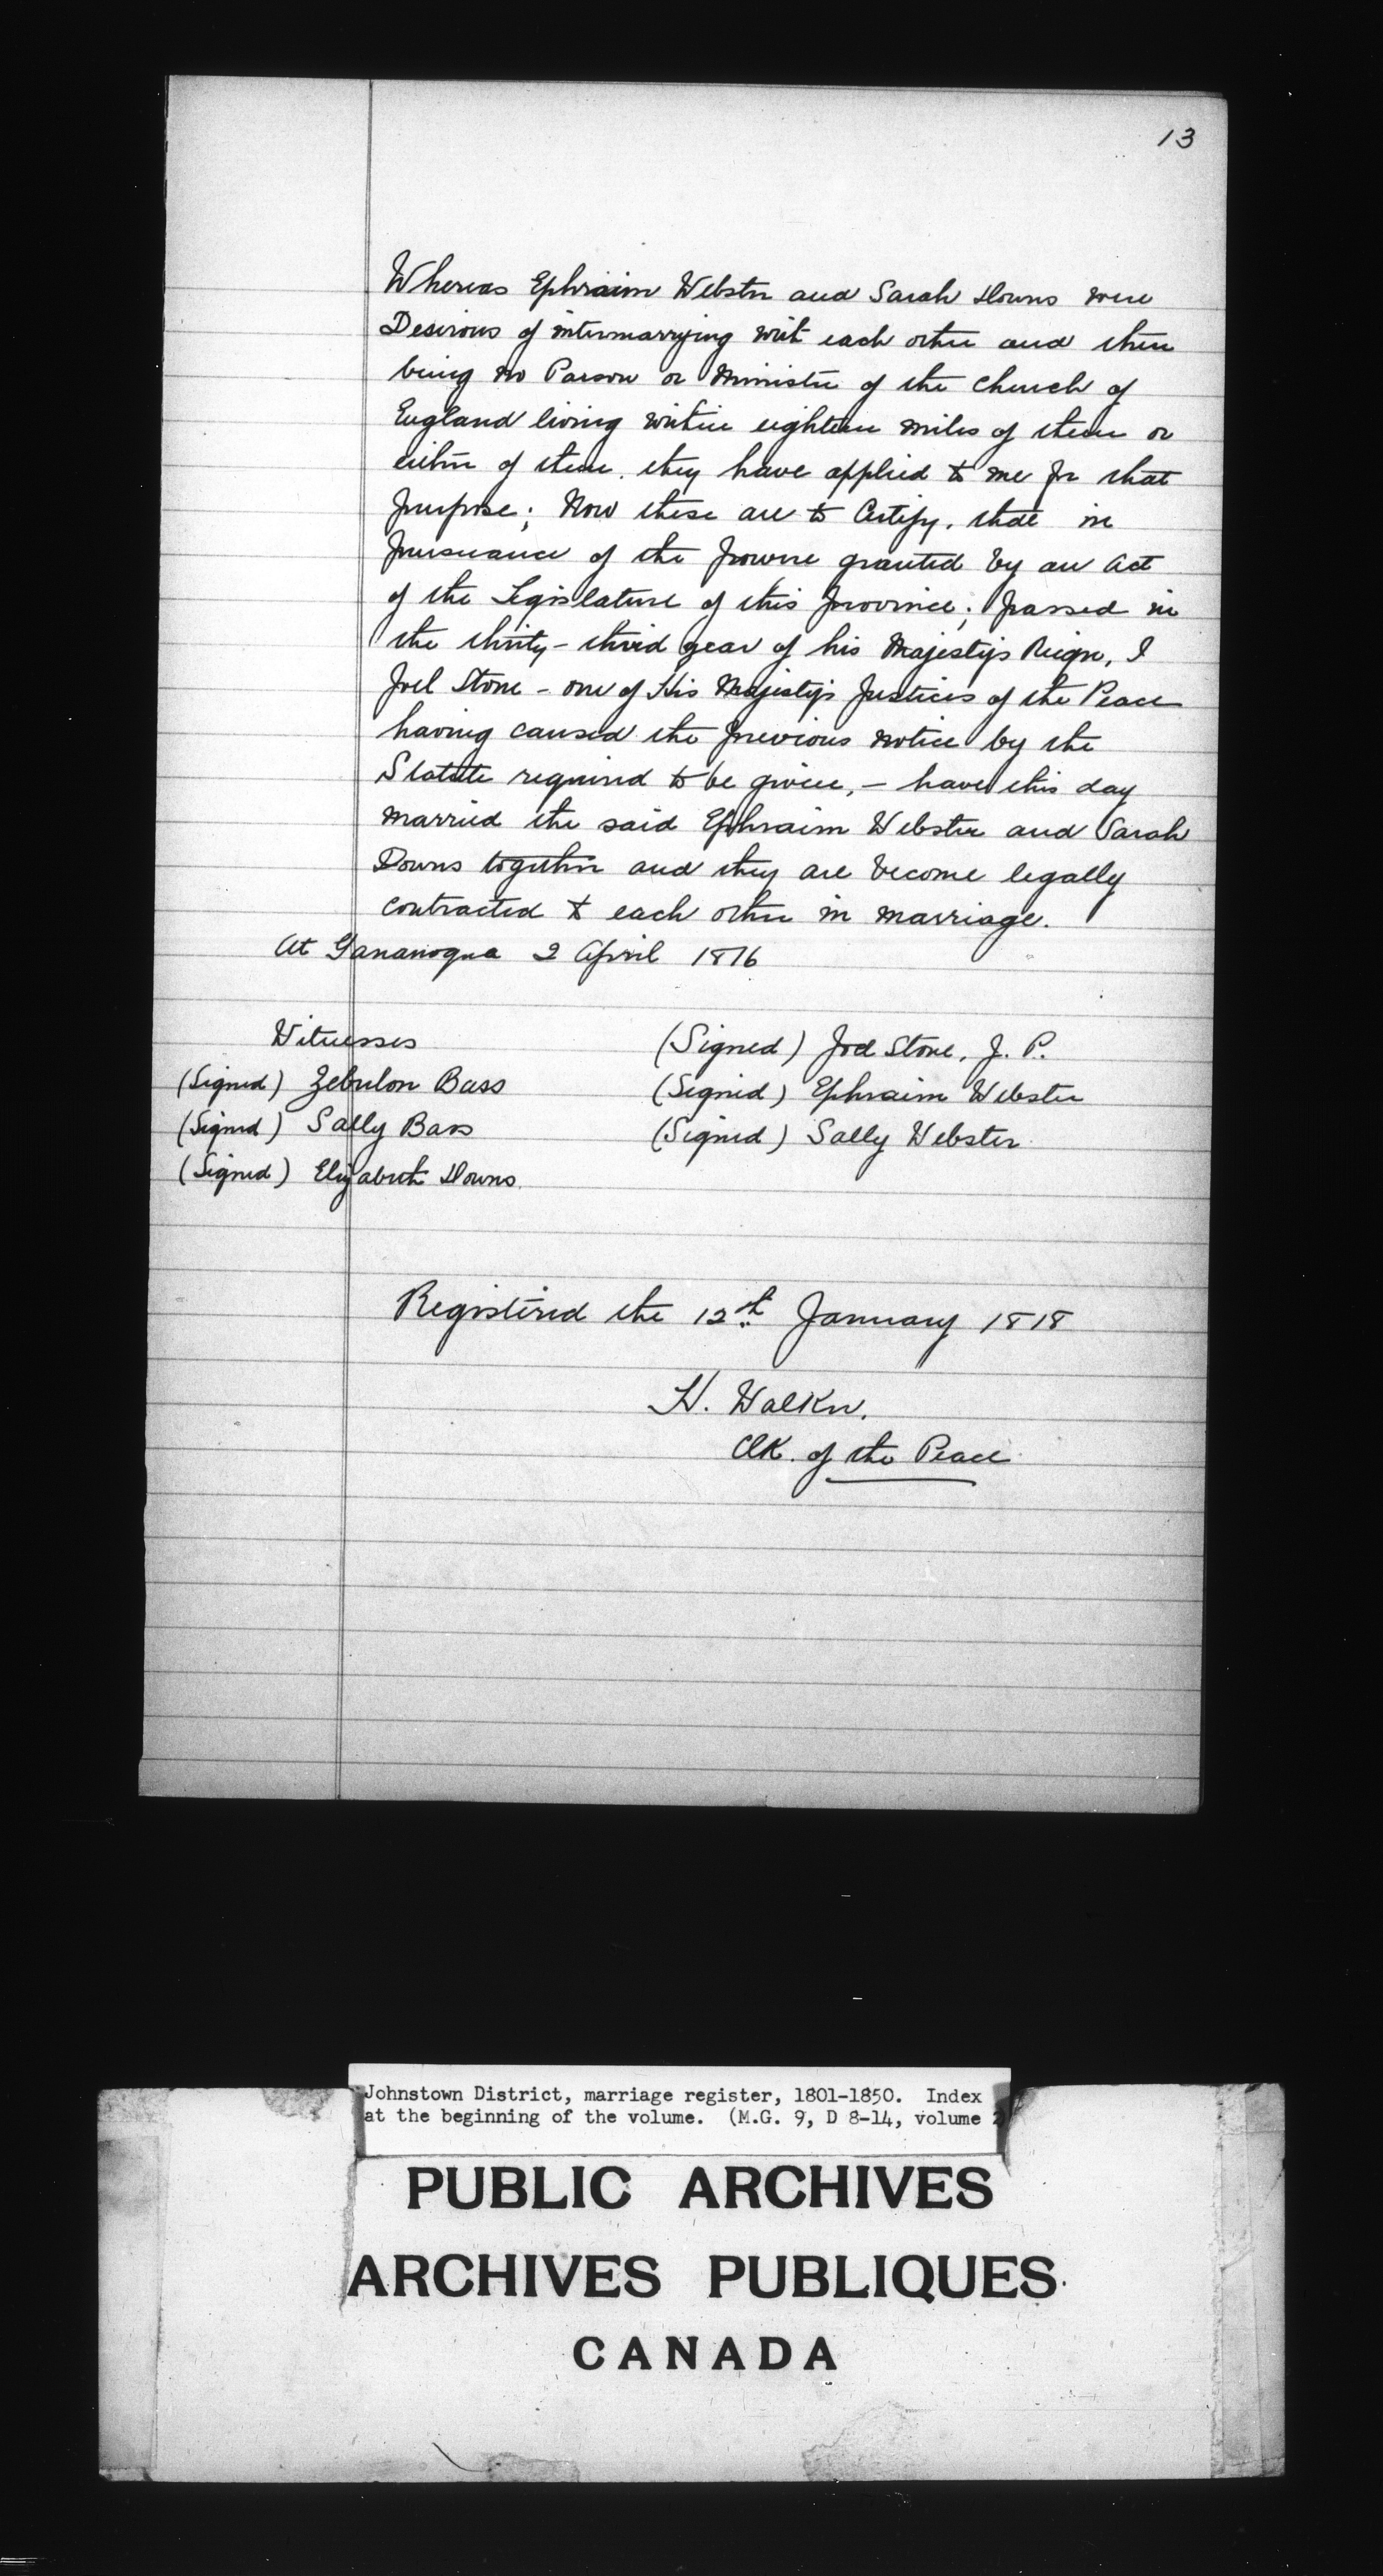 13
Whereas Ephraim Webster and Sarah Downs were
Desirous of intermarrying with each other and there
being no Parson or Minister of the Church of
England living within eighteen miles of them or
either of them. they have applied to me for that
purpose; Now these are to Certify, that in
pursuance of the powers granted by an Act
of the Legislature of this Province; passed in
the thirty-third year of his Majesty's Reign, I
Joel Stone - one of His Majesty's Justices of the Peace
having caused the previous notice by the
Statute required to be given, - have this day
married the said Ephraim Webster and Sarah
Downs together and they are become legally
contracted to each other in marriage.
At Gananoqua 2 April 1816
Witnesses
(Signed) Joel Stone, J. P.
(Signed) Zebulon Bass
(Signed) Ephraim Webster
(Signed) Sally Bass
(Signed) Sally Webster
(Signed) Elizabeth Downs.
Registered the 12th January 1818
H. Walker.
Clk. of the Peace
Johnstown District, marriage register, 1801-1850. Index
at the beginning of the volume. (M.G. 9, D 8-14, volume 2
PUBLIC ARCHIVES
ARCHIVES PUBLIQUES
CANADA